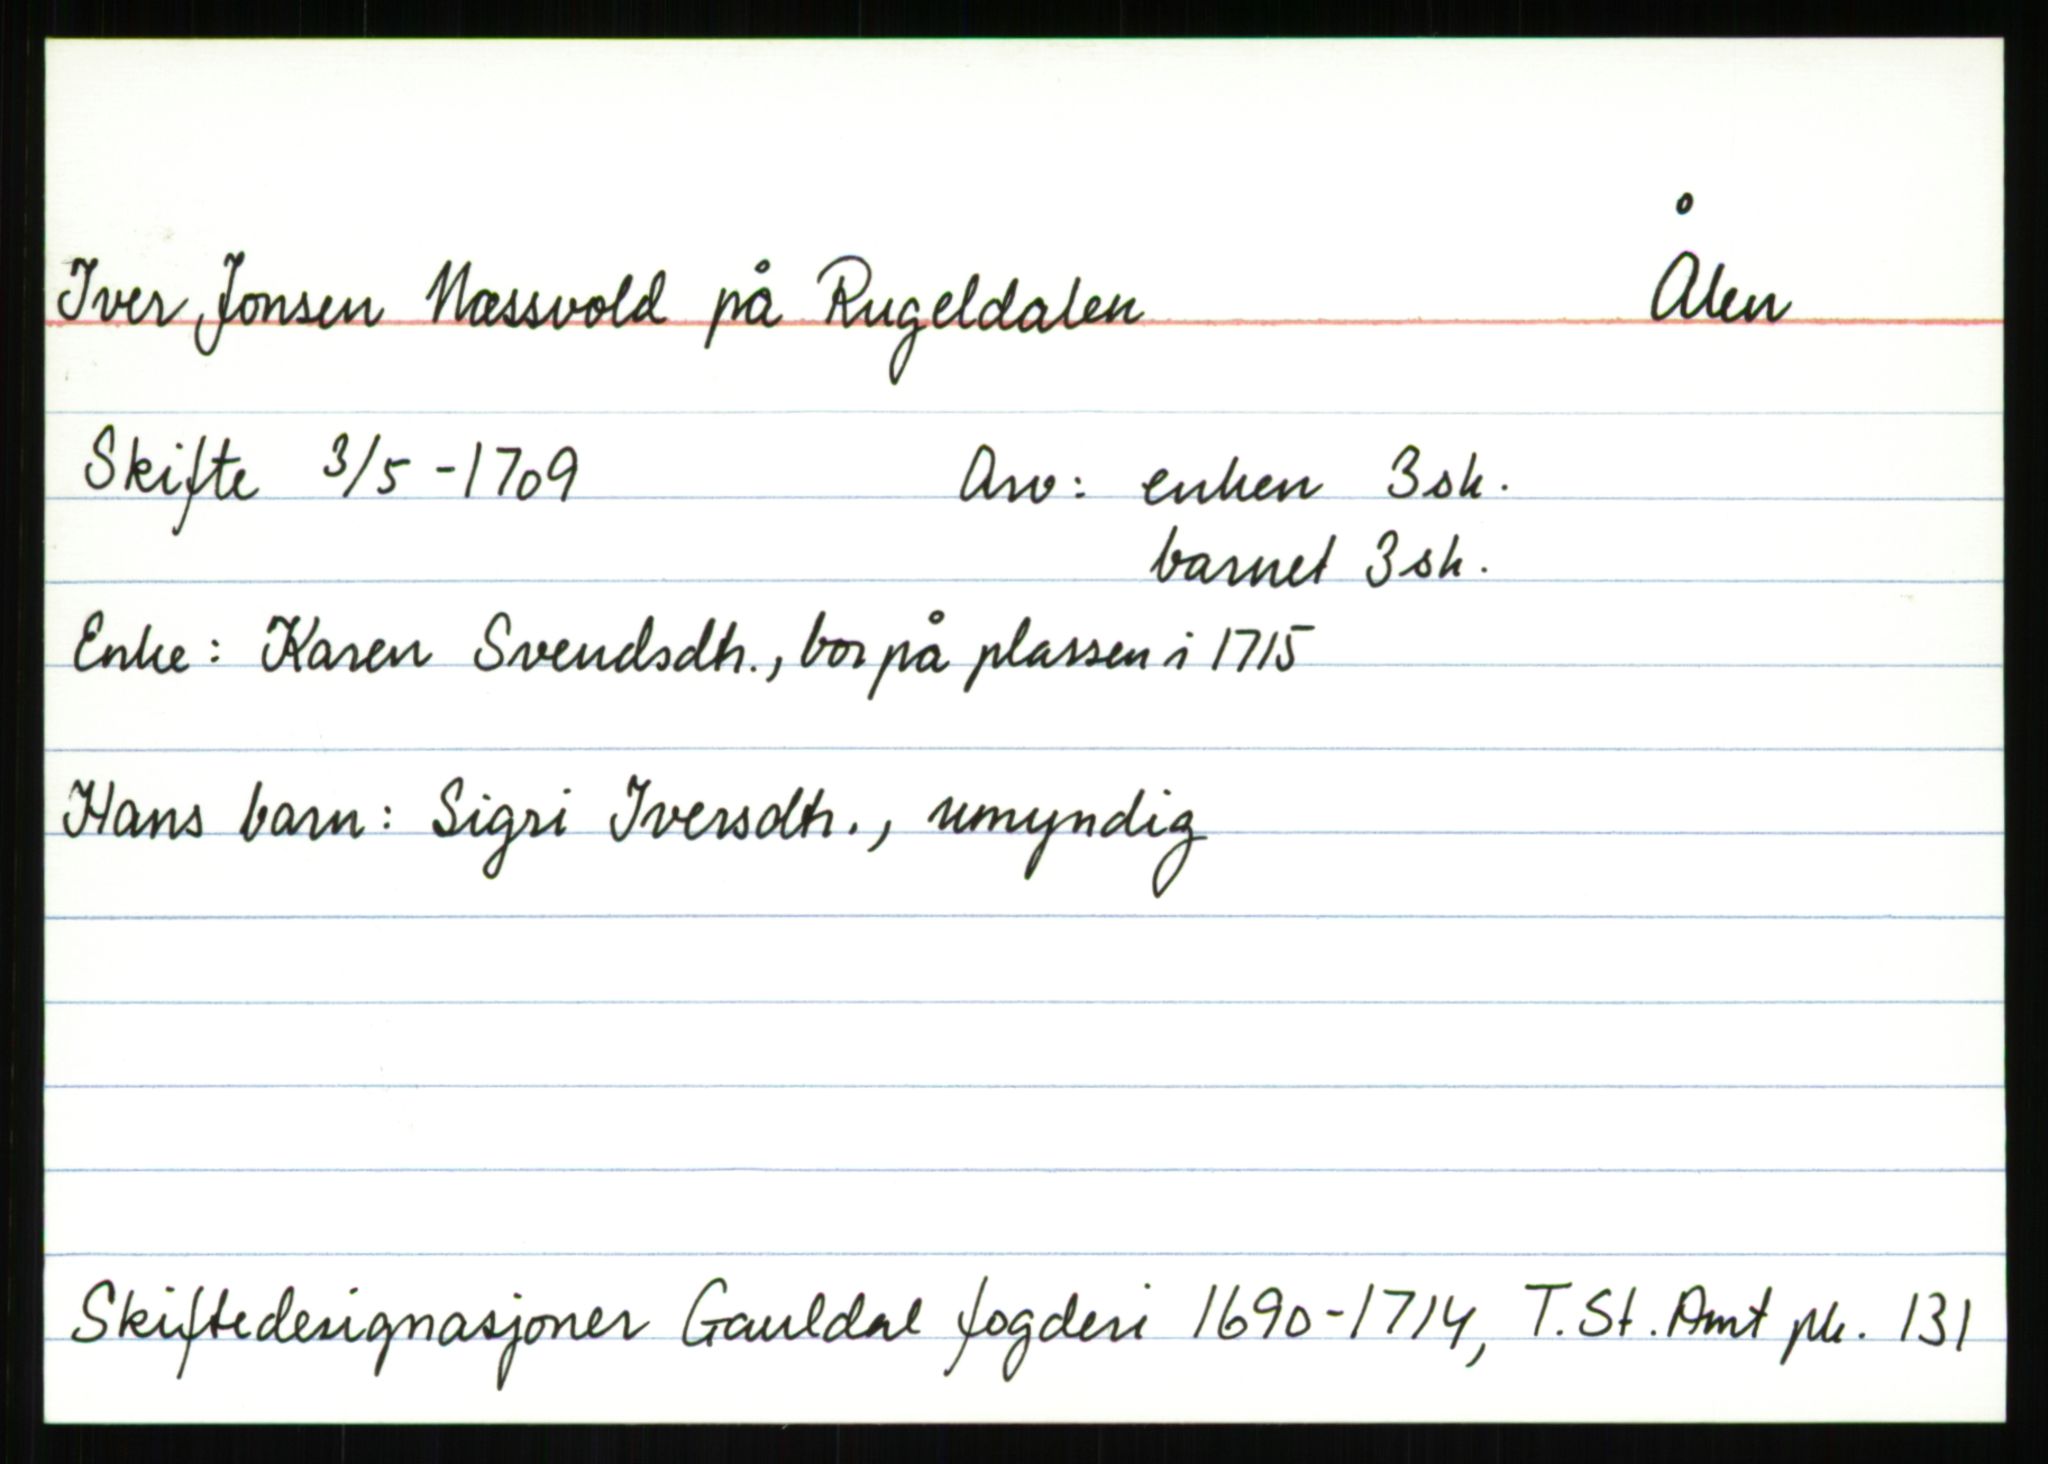 Iver Jonsen Næssvold på Rugeldalen Ålen
Skifte 3/5 - 1709 Arv: enken 3 sk.
barnet 3 sk.
Enke: Karen Svendsdtr., bor på plassen i 1715
Hans barn: Sigri Iversdtr., umyndig
Skiftedesignasjoner Gauldal fogderi 1690-1714, T. St. Amt pk. 131